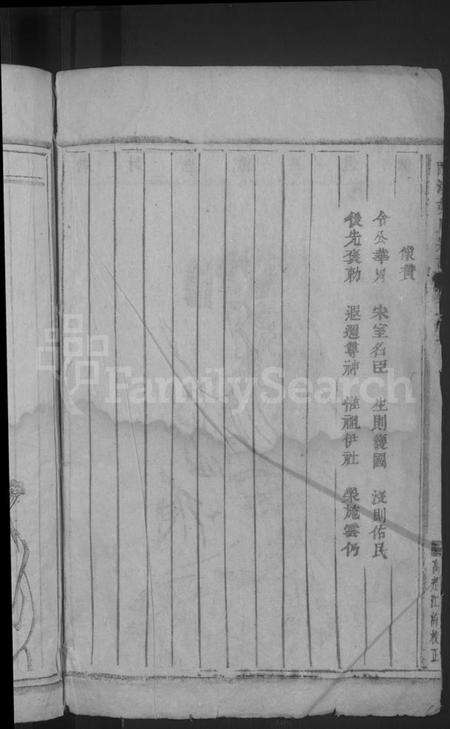 像贊
令公華胄 宋室名臣 生則護國 沒則佑民
後先褒勅 遐邇尊神 惟祖伊社 榮施雲仍
FamilySearch